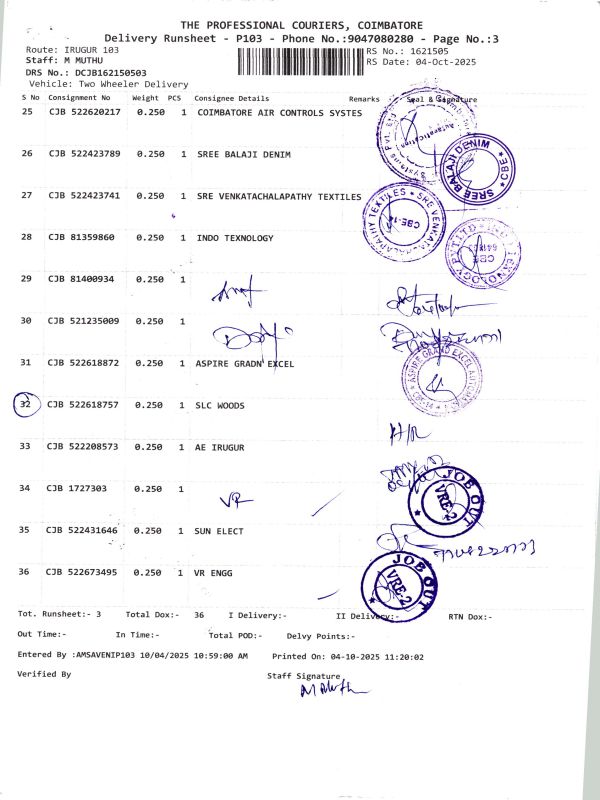 THE PROFESSIONAL COURIERS, COIMBATORE
Delivery Runsheet - P103 - Phone No.:9047080280 - Page No.:3
Route: IRUGUR 103
RS No.: 1621505
Staff: M MUTHU
RS Date: 04-Oct-2025
DRS No.: DCJB162150503
Vehicle: Two Wheeler Delivery
S No Consignment No Weight PCS Consignee Details Remarks Seal & Signature
25 CJB 522620217 0.250 1 COIMBATORE AIR CONTROLS SYSTES
26 CJB 522423789 0.250 1 SREE BALAJI DENIM
SREE BALAJI DENIM * CBE *
27 CJB 522423741 0.250 1 SRE VENKATACHALAPATHY TEXTILES
SRE VENKATACHALAPATHY TEXTILES * CBE-14
28 CJB 81359860 0.250 1 INDO TEXNOLOGY
29 CJB 81400934 0.250 1
30 CJB 521235009 0.250 1
31 CJB 522618872 0.250 1 ASPIRE GRADN EXCEL
32 CJB 522618757 0.250 1 SLC WOODS
33 CJB 522208573 0.250 1 AE IRUGUR
34 CJB 1727303 0.250 1 VR
JOB OUT VRE-2 *
35 CJB 522431646 0.250 1 SUN ELECT
36 CJB 522673495 0.250 1 VR ENGG
JOB OUT VRE-2 *
Tot. Runsheet:- 3 Total Dox:- 36 I Delivery:- II Delivery:- RTN Dox:-
Out Time:- In Time:- Total POD:- Delvy Points:-
Entered By :AMSAVENIP103 10/04/2025 10:59:00 AM Printed On: 04-10-2025 11:20:02
Verified By Staff Signature